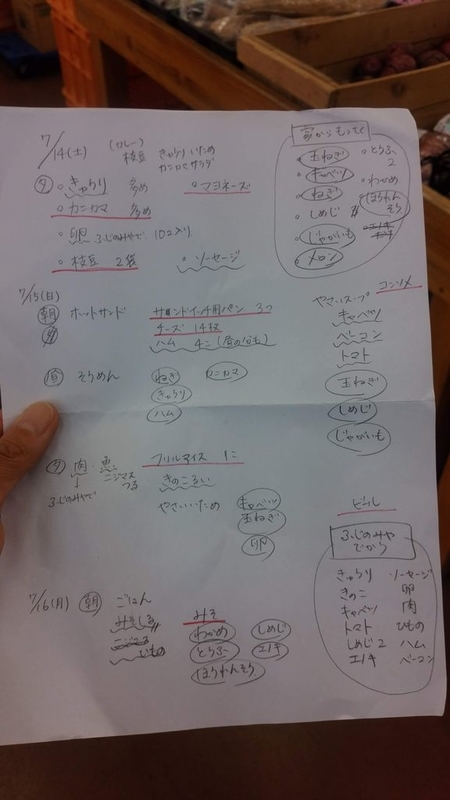 7/14(土) (カレー) 枝豆 きゅうりいため カニカマサラダ
夕 ・きゅうり 多め ・マヨネーズ
・カニカマ 多め
・卵 ふじのみやで 10コ入り
・枝豆 2袋 ・ソーセージ
家からもってく
・玉ねぎ ・とうふ 2
・キャベツ ・わかめ
・ねぎ ・ほうれんそう
・しめじ
・じゃがいも
・メロン
7/15(日) 朝 ホットサンド サンドイッチ用パン 3つ
チーズ 14枚
ハム 4コ(昼の分も)
ヤサイスープ コンソメ
キャベツ
ベーコン
トマト
玉ねぎ
しめじ
じゃがいも
昼 そうめん ねぎ カニカマ
きゅうり
ハム
夕 肉・魚 フリルマイス 1こ
ふじのみやで ニジマス つる
きのこるい
ヤサイいため キャベツ
玉ねぎ
卵
ビール
ふじのみやでかう
きゅうり ソーセージ
きのこ 卵
キャベツ 肉
トマト ひもの
しめじ2 ハム
エノキ ベーコン
7/16(月) 朝 ごはん みそ
みそしる わかめ しめじ
ひもの とうふ エノキ
ほうれんそう